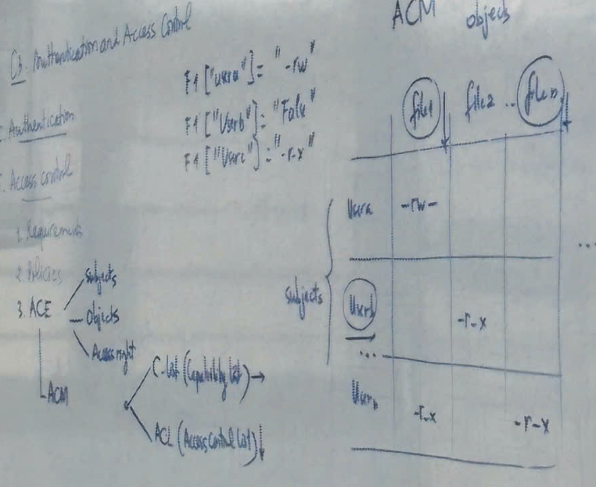 C3. Authentication and Access Control
Authentication
Access control
1. Requirements
2. Policies
3. ACE
subjects
objects
Access right
ACM
C-list (Capability list) →
ACL (Access Control List) ↓
F1 ["usera"] = "-rw"
F1 ["Userb"] = "False"
F1 ["Userc"] = "-r-x"
ACM objects
file1 file2 .. file n
subjects
Usera -rw-
Userb -r-x
...
...
User -r-x -r-x